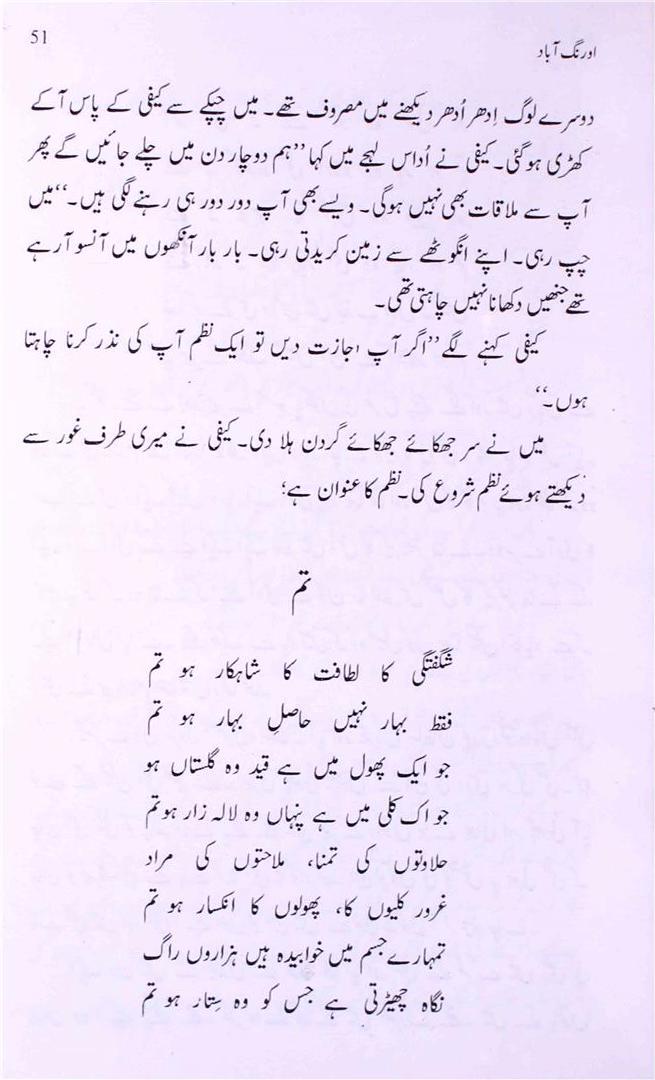 اورنگ آباد 51
دوسرے لوگ اِدھر اُدھر دیکھنے میں مصروف تھے۔ میں چپکے سے کیفی کے پاس آ کے
کھڑی ہوگئی۔ کیفی نے اُداس لہجے میں کہا ”ہم دو چار دن میں چلے جائیں گے پھر
آپ سے ملاقات بھی نہیں ہوگی۔ ویسے بھی آپ دور دور ہی رہنے لگی ہیں۔“ میں
چپ رہی۔ اپنے انگوٹھے سے زمین کریدتی رہی۔ بار بار آنکھوں میں آنسو آرہے
تھے جنھیں دکھانا نہیں چاہتی تھی۔
کیفی کہنے لگے ”اگر آپ اجازت دیں تو ایک نظم آپ کی نذر کرنا چاہتا
ہوں۔“
میں نے سر جھکائے جھکائے گردن ہلا دی۔ کیفی نے میری طرف غور سے
دیکھتے ہوئے نظم شروع کی۔ نظم کا عنوان ہے؛
تم
شگفتگی کا لطافت کا شاہکار ہو تم
فقط بہار نہیں حاصلِ بہار ہو تم
جو ایک پھول میں ہے قید وہ گلستاں ہو
جو اک کلی میں ہے پنہاں وہ لالہ زار ہو تم
حلاوتوں کی تمنا، ملاحتوں کی مراد
غرور کلیوں کا، پھولوں کا انکسار ہو تم
تمہارے جسم میں خوابیدہ ہیں ہزاروں راگ
نگاہ چھیڑتی ہے جس کو وہ ستار ہو تم